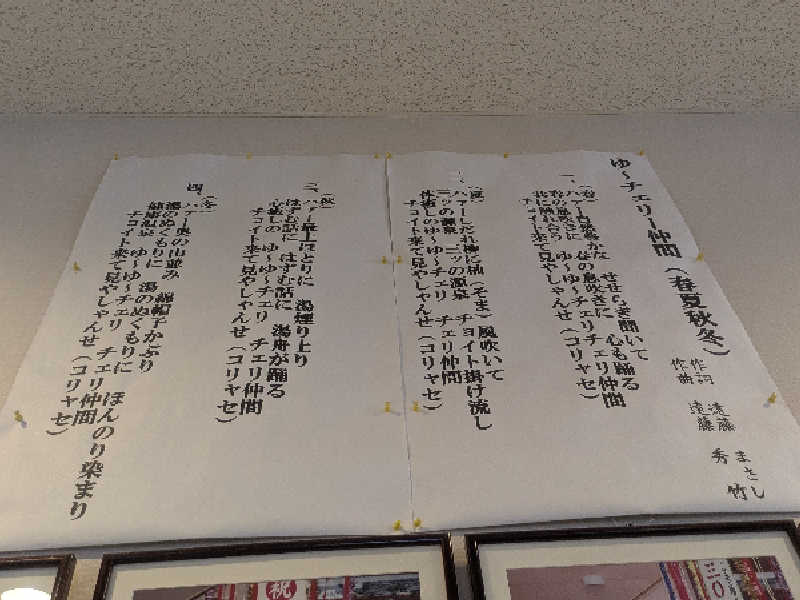 ゆ～チェリー仲間（春夏秋冬）
作詞 遠藤 まさし
作曲 遠藤 秀竹
一、（春）
せせらぎ聞いて
春の息ぶきに 心も踊る
ゆ～ゆ～チェリ チェリ仲間
チョイト来て見やしゃんせ（コリャセ）
（夏）
ハァーしだれ柳に杣（そま）風吹いて
三ツの源泉 三ツの源泉 チョイト掛け流し
体癒しのゆ～ゆ～チェリ チェリ仲間
チョイト来て見やしゃんせ（コリャセ）
三、（秋）
ハァー最上ほとりに 湯煙り上り
はずむ話に はずむ話に 湯舟が踊る
心癒しの ゆ～ゆ～チェリ チェリ仲間
チョイト来て見やしゃんせ（コリャセ）
四、（冬）
ハァー奥の山並み 綿帽子かぶり
湯のぬくもりに 湯のぬくもりに ほんのり染まり
健康温泉 ゆ～ゆ～チェリ チェリ仲間
チョイト来て見やしゃんせ（コリャセ）
祝
三〇